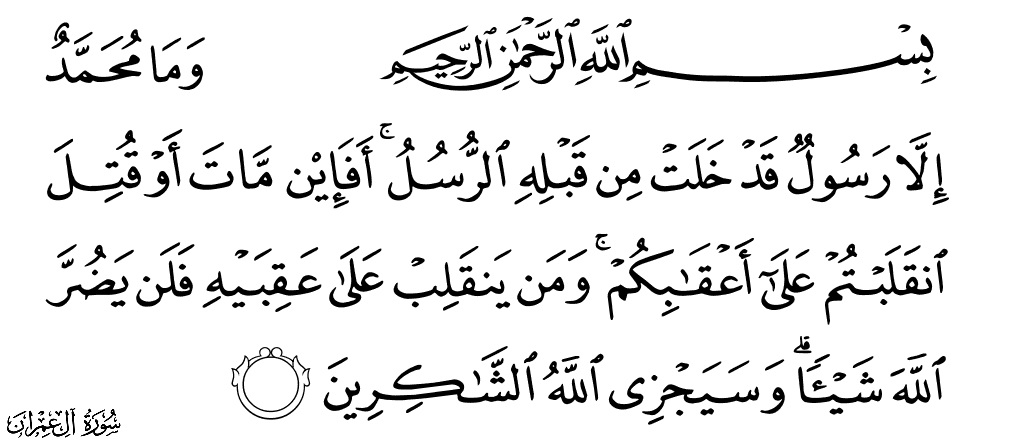 بِسْمِ ٱللَّهِ ٱلرَّحْمَٰنِ ٱلرَّحِيمِ وَمَا مُحَمَّدٌ
إِلَّا رَسُولٌ قَدْ خَلَتْ مِن قَبْلِهِ ٱلرُّسُلُ ۚ أَفَإِيْن مَّاتَ أَوْ قُتِلَ
ٱنقَلَبْتُمْ عَلَىٰٓ أَعْقَٰبِكُمْ ۚ وَمَن يَنقَلِبْ عَلَىٰ عَقِبَيْهِ فَلَن يَضُرَّ
ٱللَّهَ شَيْـًٔا ۗ وَسَيَجْزِى ٱللَّهُ ٱلشَّٰكِرِينَ
سُورَةُ آلِ عِمْرَان